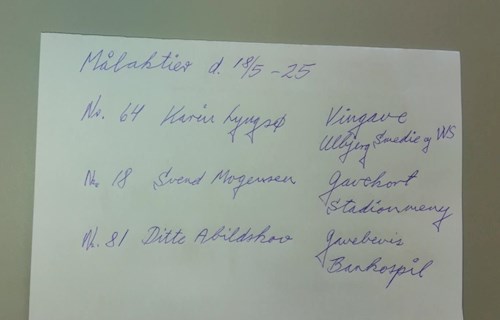 Målaktier d. 18/5 - 25
No. 64 Karin Lyngsø Vingave
Ulbjerg Smedie og VVS
No. 18 Svend Mogensen Gavekort
Stadionmeny
No. 81 Ditte Abildskov Gavebevis
Bankospil